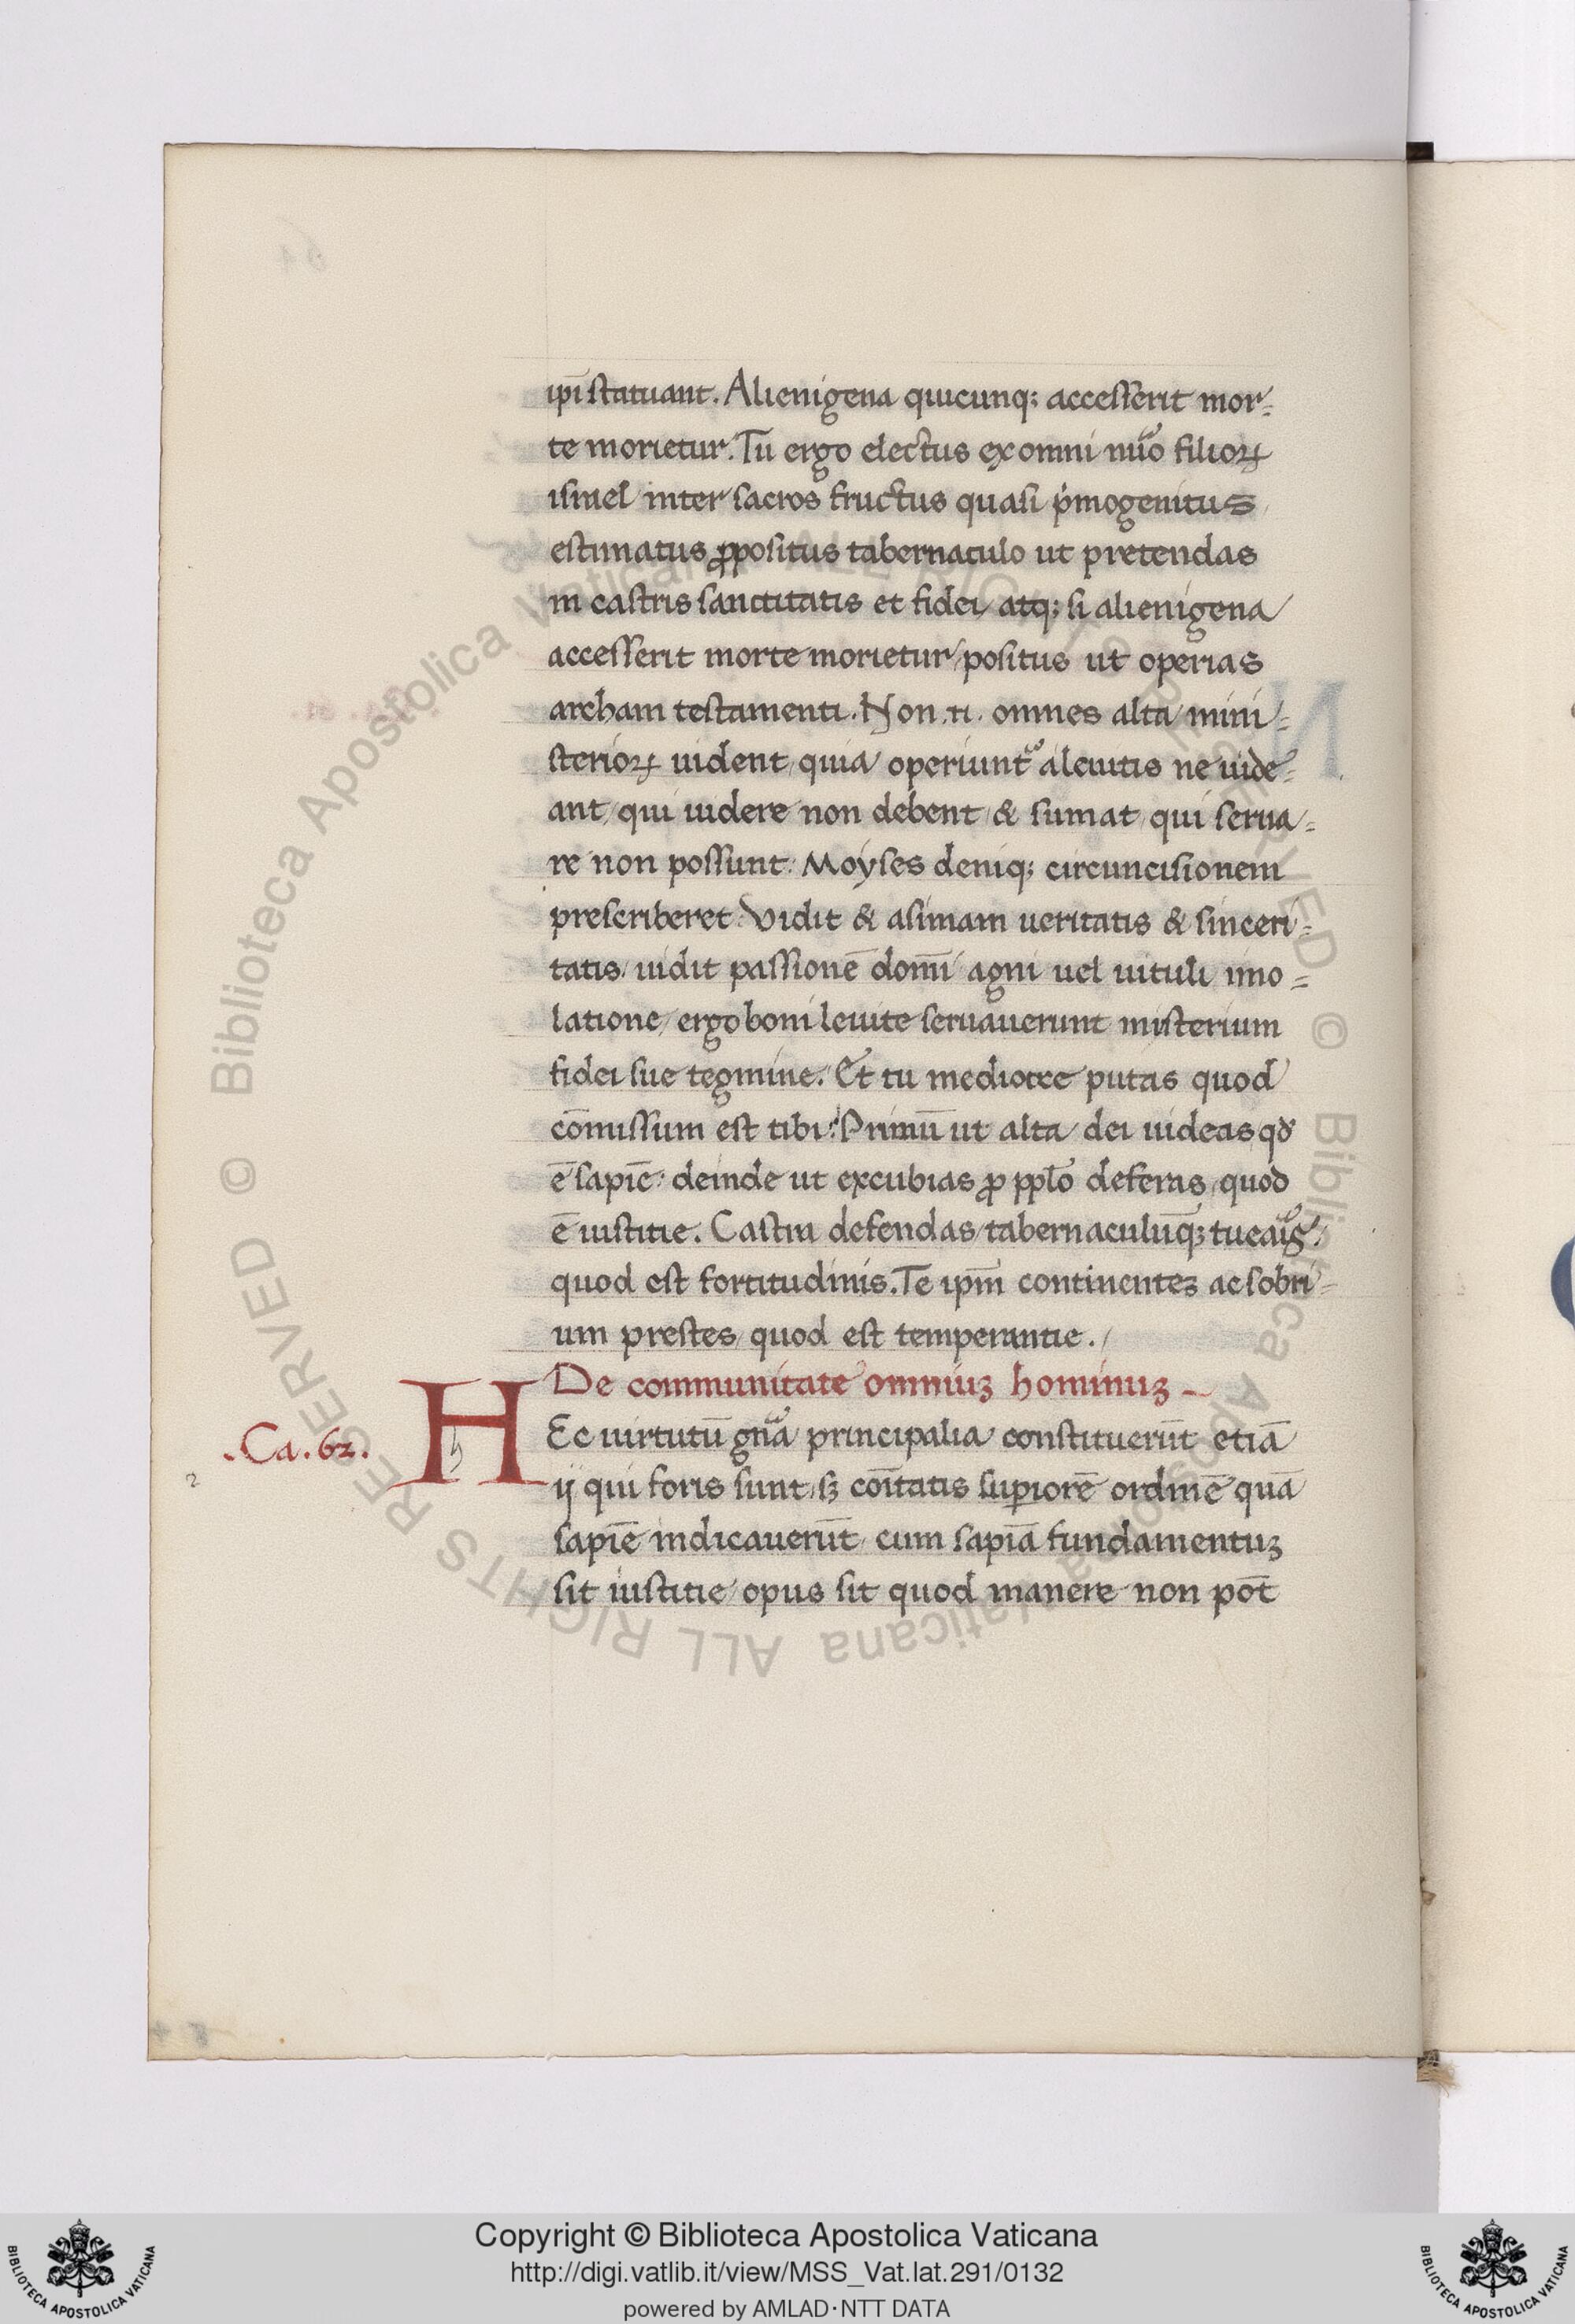 ip̄i statuant. Alienigena quicunq; accesserit mor=
te morietur. Tu ergo electus ex omni nũo filioꝝ
israel inter sacros fructus quasi pͥmogenitus
estimatus ꝓpositus tabernaculo ut pretendas
in castris sanctitatis et fidei, atq; si alienigena
accesserit morte morietur / positus ut operias
archam testamenti. Non .n. omnes alta mini=
sterioꝝ uident, quia operiunt᷑ a leuitis ne uide=
ant, qui uidere non debent & sumat, qui serua=
re non possunt: Moyses deniq; circuncisionem
prescriberet. Vidit & asimam ueritatis & sinceri=
tatis, uidit passionē domĩ agni uel uituli imo=
latione, ergo boni leuite seruauerunt misterium
fidei sue tegmine. Et tu mediocre putas quod
cōmissum est tibi? Primū ut alta dei uideas qđ
ē sapiē: deinde ut excubias ꝓ pplo deferas, quod
ē iustitie. Castra defendas, tabernaculūq; tueaīs /
quod est fortitudinis. Te ipm̄ continentez ac sobri=
um prestes, quod est temperantie. /
De communitate omniuz hominuz
.Ca. 62.
HEc uirtutū gn̄a principalia constituerūt etiā
ij qui foris sunt, sꝫ cōitatis suꝑiorē ordinē quā
sapiē indicauerūt, cum sapiā fundamentuz
sit iustitie, opus sit quod manere non pōt
Copyright © Biblioteca Apostolica Vaticana
http://digi.vatlib.it/view/MSS_Vat.lat.291/0132
powered by AMLAD·NTT DATA
BIBLIOTECA APOSTOLICA VATICANA
BIBLIOTECA APOSTOLICA VATICANA
© Biblioteca Apostolica Vaticana ALL RIGHTS RESERVED © Biblioteca Apostolica Vaticana ALL RIGHTS RESERVED